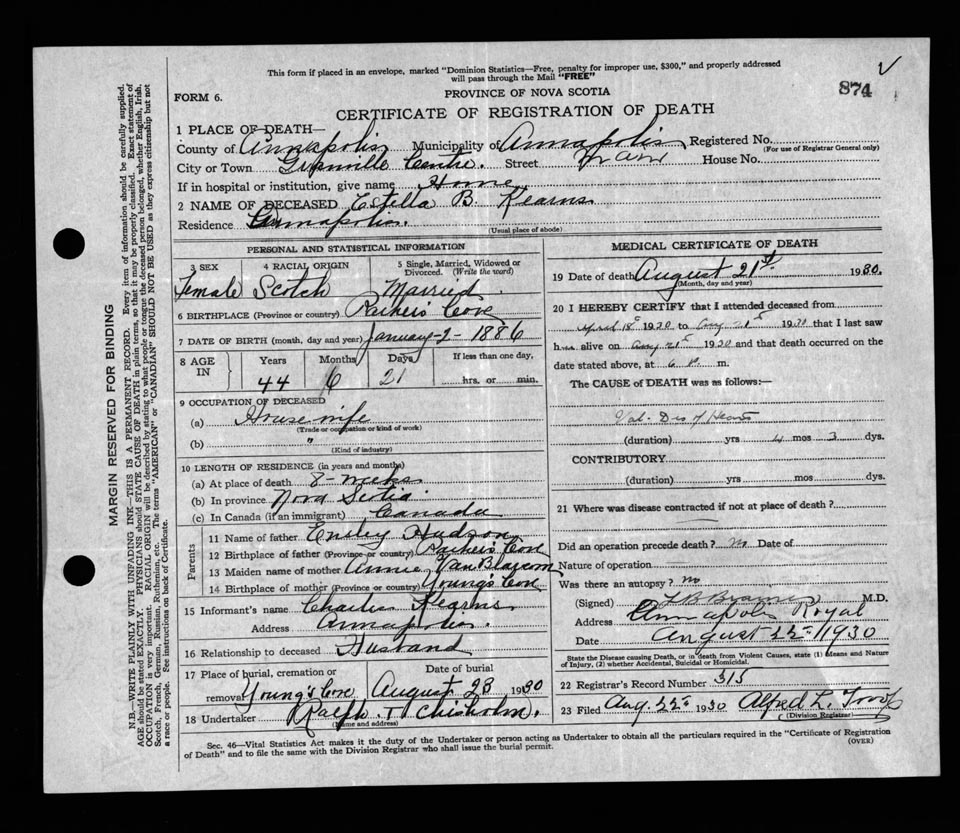 This form if placed in an envelope, marked "Dominion Statistics—Free, penalty for improper use, $300," and properly addressed
will pass through the Mail "FREE"
874
FORM 6.
PROVINCE OF NOVA SCOTIA
CERTIFICATE OF REGISTRATION OF DEATH
1 PLACE OF DEATH—
County of Annapolis Municipality of Annapolis Registered No.
(For use of Registrar General only)
City or Town Granville Centre. Street House No.
If in hospital or institution, give name Home
2 NAME OF DECEASED Estella B. Kearns
Residence Annapolis.
(Usual place of abode)
PERSONAL AND STATISTICAL INFORMATION
3 SEX 4 RACIAL ORIGIN 5 Single, Married, Widowed or Divorced. (Write the word)
Female Scotch Married
6 BIRTHPLACE (Province or country) Parker's Cove
7 DATE OF BIRTH (month, day and year) January-2-1886
8 AGE IN Years Months Days If less than one day,
44 6 21 hrs. or min.
9 OCCUPATION OF DECEASED
(a) Housewife
(Trade or occupation or kind of work)
(b) "
(Kind of industry)
10 LENGTH OF RESIDENCE (in years and months)
(a) At place of death 8-weeks
(b) In province Nova Scotia
(c) In Canada (if an immigrant) Canada
Parents
11 Name of father Hudson
12 Birthplace of father (Province or country) Parker's Cove
13 Maiden name of mother Annie Van Blarcom
14 Birthplace of mother (Province or country) Young's Cove
15 Informant's name Charles Kearns
Address Annapolis.
16 Relationship to deceased Husband
17 Place of burial, cremation or removal Young's Cove Date of burial August 23 1930
18 Undertaker Ralph Chisholm.
(Name and address)
MEDICAL CERTIFICATE OF DEATH
19 Date of death August 21st 1930.
(Month, day and year)
20 I HEREBY CERTIFY that I attended deceased from
April 18th 1930 to Aug 21st 1930 that I last saw
her alive on Aug 21st 1930 and that death occurred on the
date stated above, at 6 P. m.
The CAUSE of DEATH was as follows:—
Val. Dis of Heart
(duration) yrs 4 mos 3 dys.
CONTRIBUTORY.
(duration) yrs mos dys.
21 Where was disease contracted if not at place of death?
Did an operation precede death? no Date of
Nature of operation
Was there an autopsy? no
(Signed) M.D.
Address Annapolis Royal
Date August 22nd 1930
State the Disease causing Death, or in death from Violent Causes, state (1) Means and Nature
of Injury, (2) whether Accidental, Suicidal or Homicidal.
22 Registrar's Record Number 313
23 Filed Aug. 22nd 1930 Alfred L. Troop
(Division Registrar)
Sec. 46—Vital Statistics Act makes it the duty of the Undertaker or person acting as Undertaker to obtain all the particulars required in the "Certificate of Registration
of Death" and to file the same with the Division Registrar who shall issue the burial permit.
(OVER)
MARGIN RESERVED FOR BINDING
N.B.—WRITE PLAINLY WITH UNFADING INK—THIS IS A PERMANENT RECORD. Every item of information should be carefully supplied.
AGE should be stated EXACTLY. PHYSICIANS should STATE CAUSE OF DEATH in plain terms, so that it may be properly classified. Exact statement of
OCCUPATION is very important. RACIAL ORIGIN will be described by stating to what people or tongue the deceased person belonged, whether English, Irish,
Scotch, French, German, Russian, Ruthenian, etc. The terms "AMERICAN" or "CANADIAN" SHOULD NOT BE USED as they express citizenship but not
a race or people. See instructions on back of Certificate.